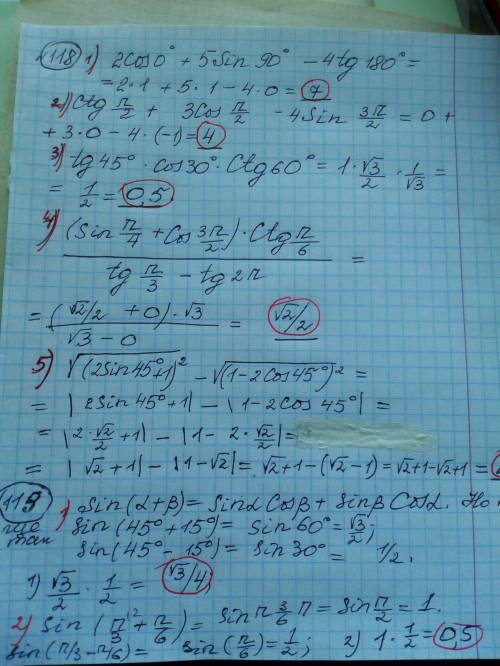 118 1) 2Cos0° + 5Sin 90° - 4tg 180° =
= 2·1 + 5·1 - 4·0 = 7
2) Ctg π/2 + 3Cos π/2 - 4Sin 3π/2 = 0 +
+ 3·0 - 4·(-1) = 4
3) tg45°·cos30°·Ctg60° = 1·√3/2·1/√3 =
= 1/2 = 0,5
4) (Sin π/4 + Cos 3π/2)·Ctg π/6
tg π/3 - tg2π =
= (√2/2 + 0)·√3 / √3 - 0 = √2/2
5) √(2Sin45°+1)² - √(1-2Cos45°)² =
= |2Sin45°+1| - |1-2Cos45°| =
= |2·√2/2 +1| - |1- 2·√2/2| =
= |√2+1| - |1-√2| = √2+1-(√2-1) = √2+1-√2+1 =
119 1) Sin(α+β) = Sinα Cosβ + Sinβ Cosα.
Sin(45°+15°) = Sin60° = √3/2;
Sin(45°-15°) = Sin30° = 1/2.
1) √3/2 · 1/2 = √3/4
2) Sin(π/3 + π/6) = Sin π 3/6 π = Sin π/2 = 1.
Sin(π/3-π/6) = Sin(π/6) = 1/2; 2) 1·1/2 = 0,5